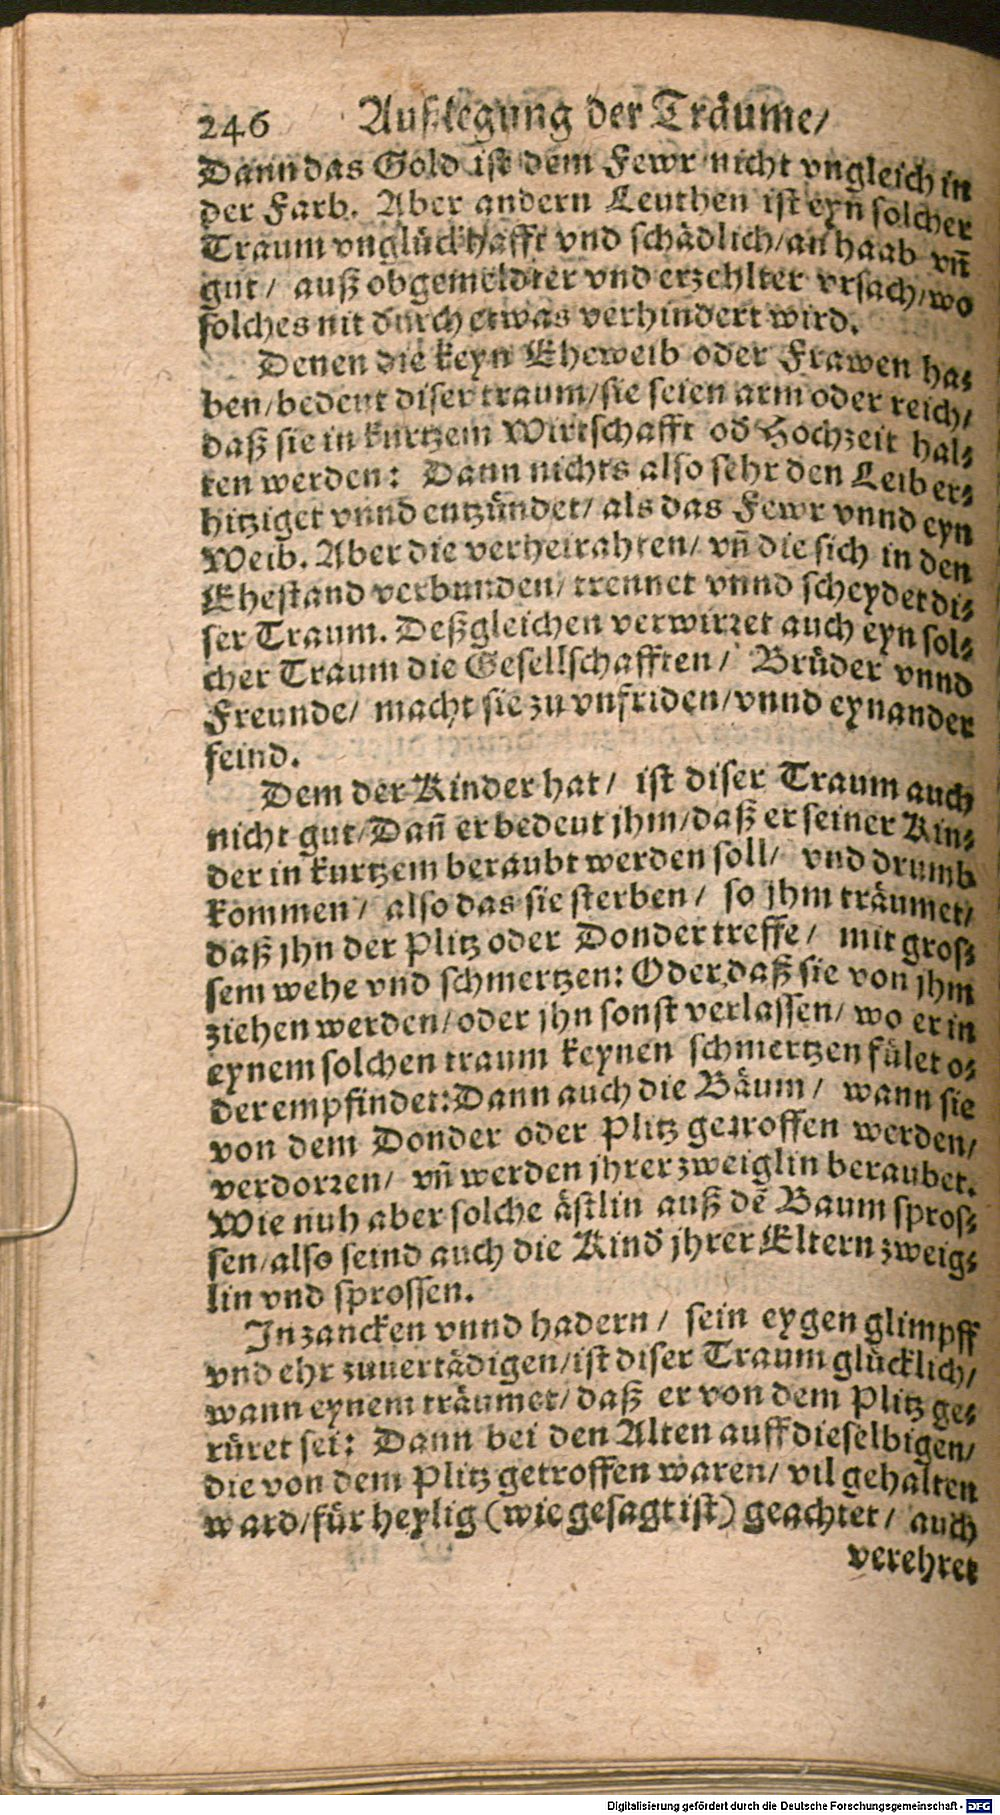 246 Außlegung der Träume/
Dann das Gold ist dem Fewr nicht vngleich in
der Farb. Aber andern Leuthen ist eyn solcher
Traum vnglückhafft vnd schädlich/an haab vñ
gut/ auß obgemeldter vnd erzehlter vrsach/wo
solches nit durch etwas verhindert wird.
Denen die keyn Eheweib oder Frawen ha-
ben/bedeut diser traum/sie seien arm oder reich/
daß sie in kurtzem Wirtschafft od Hochzeit hal-
ten werden: Dann nichts also sehr den Leib er-
hitziget vnnd entzündet/ als das Fewr vnnd eyn
Weib. Aber die verheirahten/ vñ die sich in den
Ehestand verbunden/ trennet vnnd scheydet di-
ser Traum. Deßgleichen verwirret auch eyn sol-
cher Traum die Gesellschafften/ Brüder vnnd
Freunde/ macht sie zu vnfriden/vnnd eynander
feind.
Dem der Kinder hat/ ist diser Traum auch
nicht gut/Dañ er bedeut jhm/daß er seiner Kin-
der in kurtzem beraubt werden soll/ vnd drumb
kommen/ also das sie sterben/ so jhm träumet/
daß jhn der Plitz oder Donder treffe/ mit gros-
sem wehe vnd schmertzen: Oder daß sie von jhm
ziehen werden/oder jhn sonst verlassen/ wo er in
eynem solchen traum keynen schmertzen fület o-
der empfindet: Dann auch die Bäum/ wann sie
von dem Donder oder Plitz getroffen werden/
verdorren/ vñ werden jhrer zweiglin beraubet.
Wie nuh aber solche ästlin auß dē Baum spros-
sen/also seind auch die Kind jhrer Eltern zweig-
lin vnd sprossen.
In zancken vnnd hadern/ sein eygen glimpff
vnd ehr zuuertädigen/ist diser Traum glücklich/
wann eynem träumet/daß er von dem Plitz ge-
rüret sei: Dann bei den Alten auff dieselbigen/
die von dem Plitz getroffen waren/ vil gehalten
ward/für heylig (wie gesagt ist) geachtet/ auch
verehret
Digitalisierung gefördert durch die Deutsche Forschungsgemeinschaft - DFG